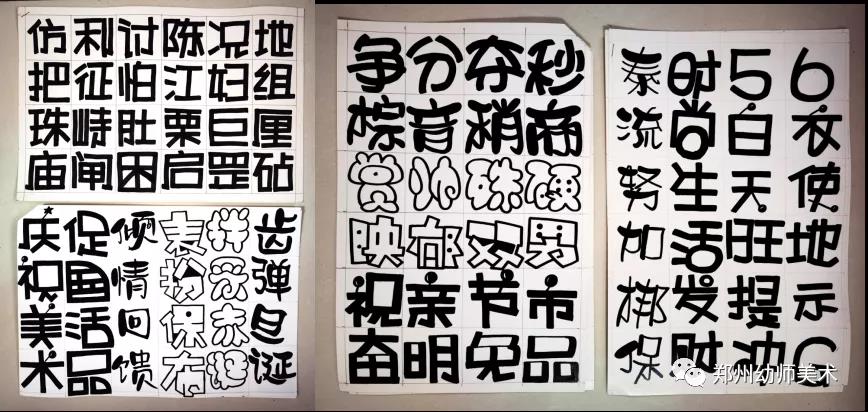 仿利讨陈况地
把征怕江妇组
珠峙肚栗巨厘
庙闸困启罡砧
庆促倾表拌齿
祝画情扮弹
美活回保旦
术品馈布诞
争分夺秒
棕音稍商
赏帅硕
映郁双男
祝亲节市
奋明免品
秦时56
流尚白衣
努生天使
如活旺地
挪发提示
保财油C
郑州幼师美术